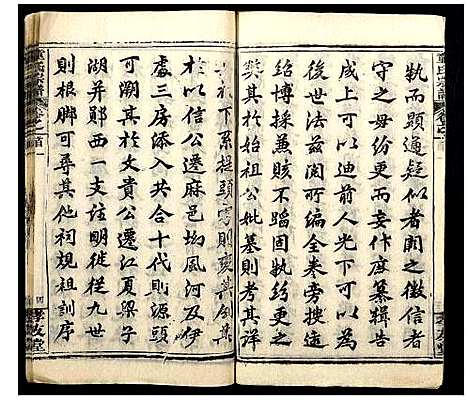 執而顕通疑似者闕之徵信者
守之毋紛更毋妄作庶纂輯告
成上可以迪前人光下可以貽
後世法兹閱所編全卷旁搜遠
紹博採兼賅不蹈固執紛更之
獘其於始祖公妣墓則考其詳
其於下系提頭
於以信公遷麻邑坳風河及伊
處三房添入共合十代則源頭
可溯其於文貴公遷江夏梁子
湖并鄖西一支註明徙從九世
則根腳可尋其他祠規祖訓序
孝友堂